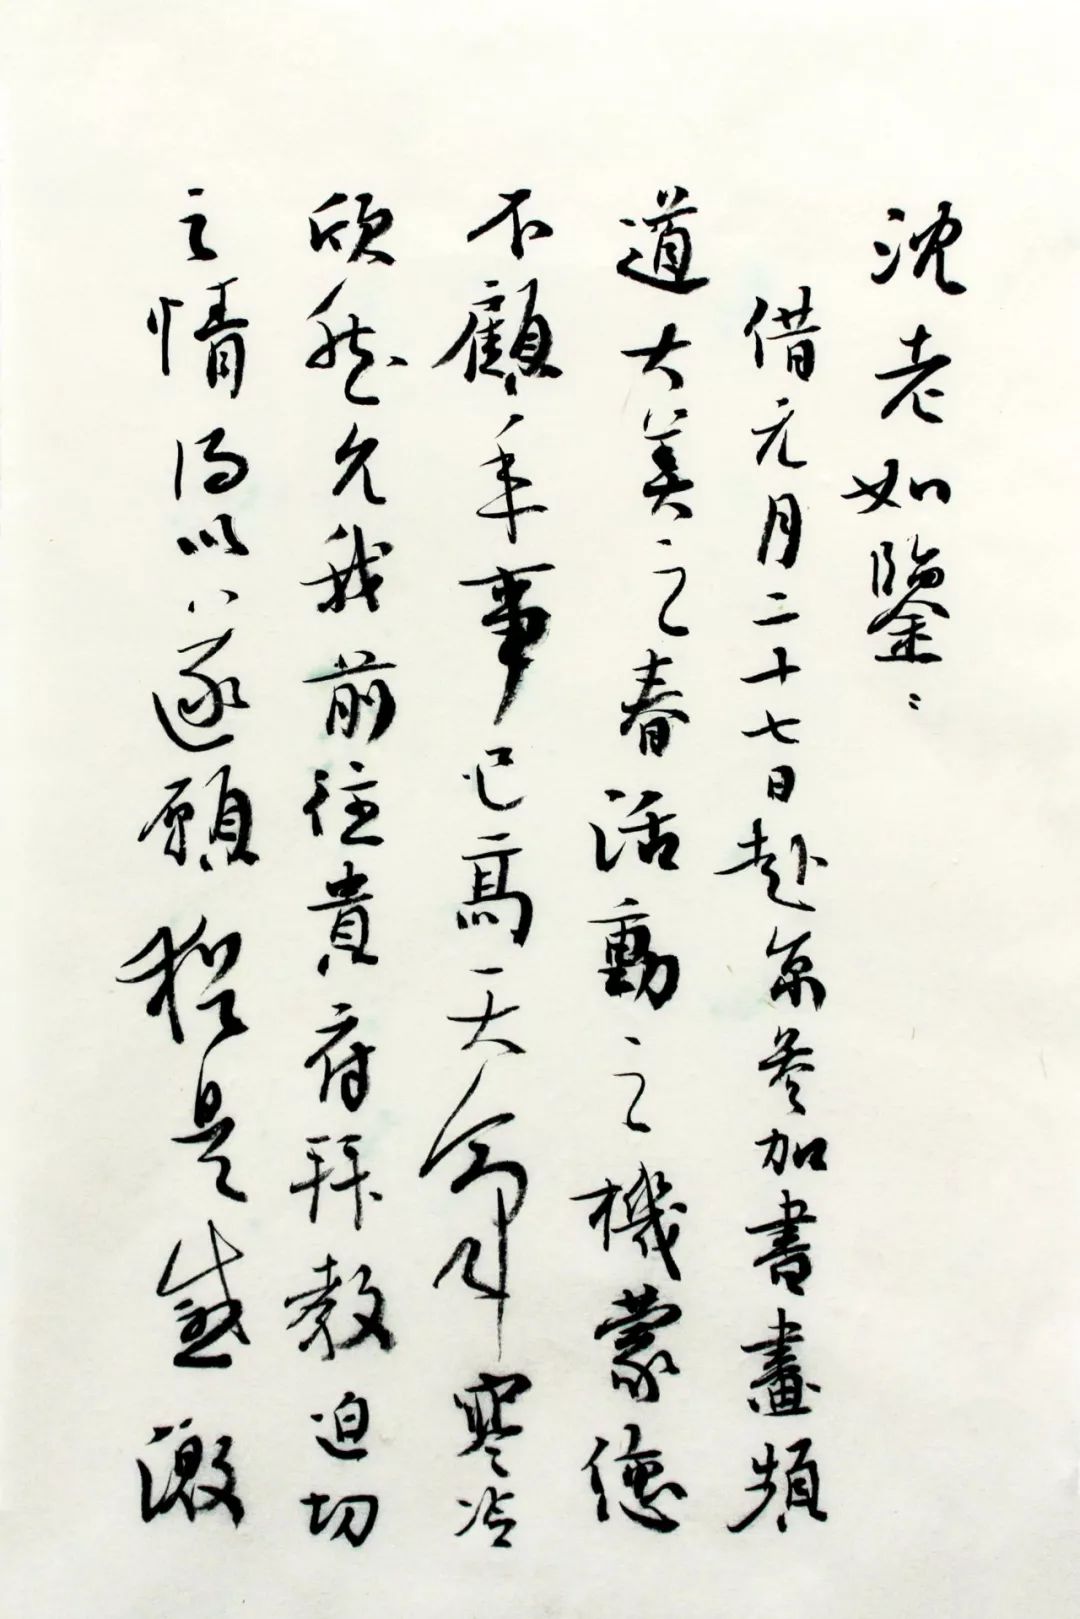 沈老如鑒：
借元月二十七日赴京参加書畫頻
道大美之春活動之機蒙您
不顧年事已高天氣寒冷
欣然允我前往貴府拜教迫切
之情得以遂願極是感激